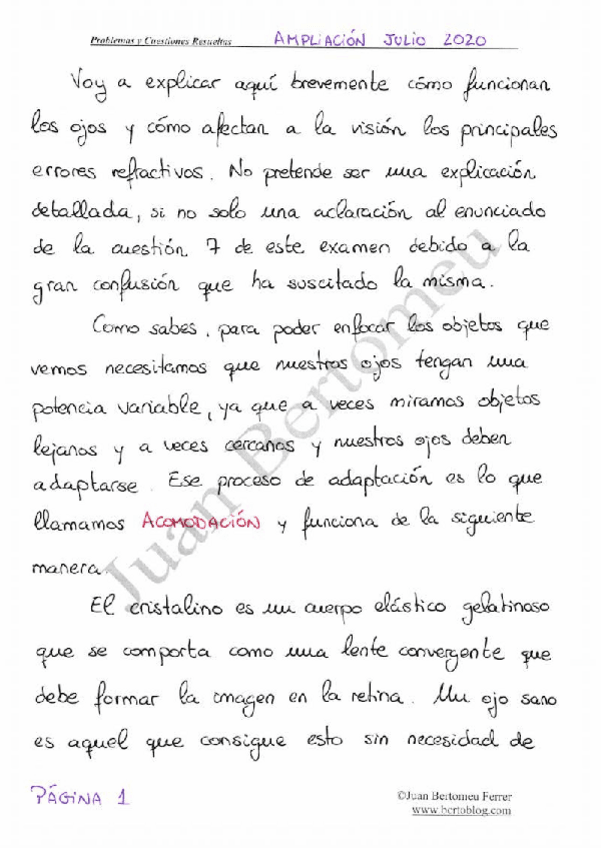 Problemas y Cuestiones Resueltas AMPLIACIÓN JULIO 2020
Voy a explicar aquí brevemente cómo funcionan
los ojos y cómo afectan a la visión los principales
errores refractivos. No pretende ser una explicación
detallada, si no solo una aclaración al enunciado
de la cuestión 7 de este examen debido a la
gran confusión que ha suscitado la misma.
Como sabes, para poder enfocar los objetos que
vemos necesitamos que nuestros ojos tengan una
potencia variable, ya que a veces miramos objetos
lejanos y a veces cercanos y nuestros ojos deben
adaptarse. Ese proceso de adaptación es lo que
llamamos ACOMODACIÓN y funciona de la siguiente
manera.
El cristalino es un cuerpo elástico gelatinoso
que se comporta como una lente convergente que
debe formar la imagen en la retina. Un ojo sano
es aquel que consigue esto sin necesidad de
PÁGINA 1
©Juan Bertomeu Ferrer
www.bertoblog.com
Juan Bertomeu